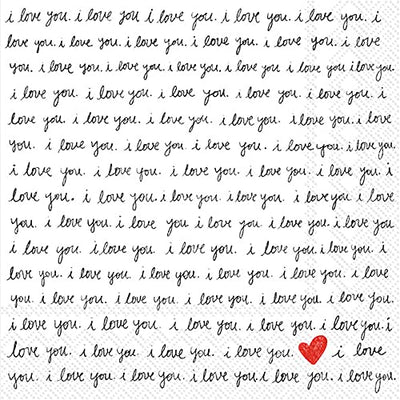 i love you. i love you. i love you. i love you. i love you. i
love you. i love you. i love you. i love you. i love you. i love
you. i love you. i love you. i love you. i love you. i love you.
i love you. i love you. i love you. i love you. i love you. i
love you. i love you. i love you. i love you. i love you. i love
you. i love you. i love you. i love you. i love you. i love you.
i love you. i love you. i love you. i love you. i love you. i
love you. i love you. i love you. i love you. i love you. i love
you. i love you. i love you. i love you. i love you. i love you.
i love you. i love you. i love you. i love you. i love you. i
love you. i love you. i love you. i love you. i love you. i love
you. i love you. i love you. i love you. i love you. i love you.
i love you. i love you. i love you. i love you. i love you. i
love you. i love you. i love you. i love you. i love
you. i love you. i love you. i love you. i love you. i love you.